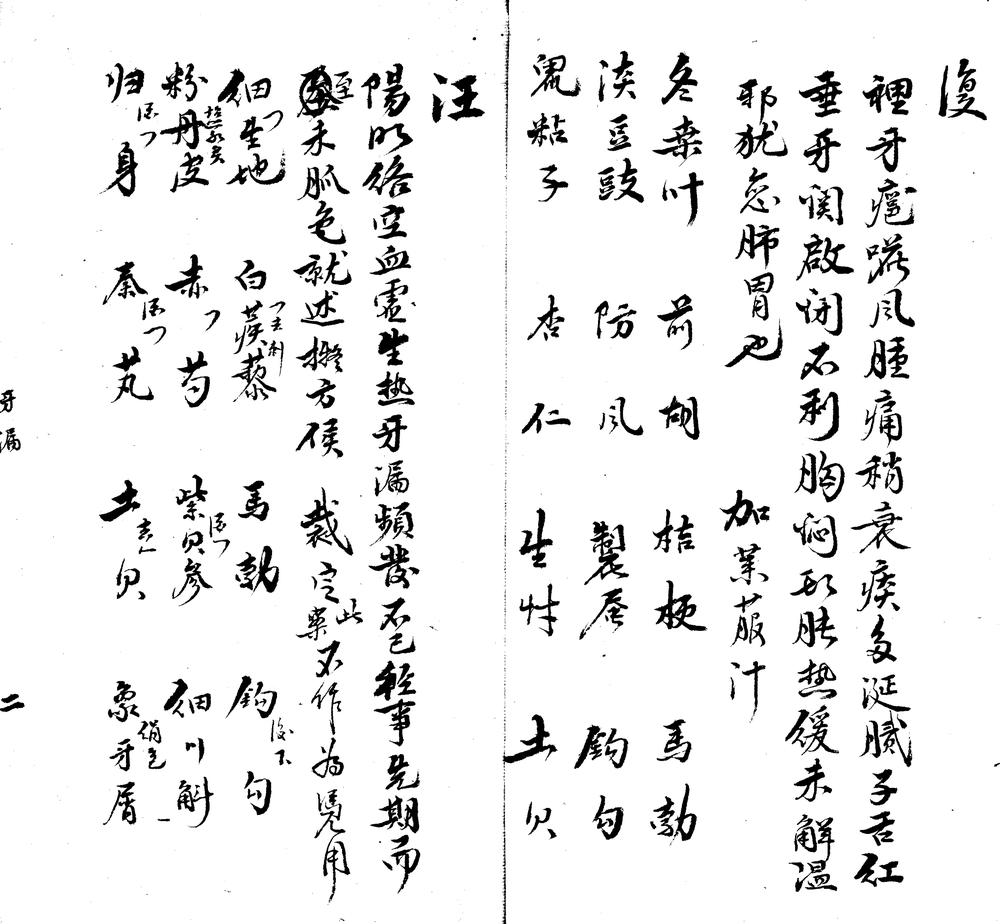 復
裡牙疳蹉風腫痛稍衰痰多涎膩子舌紅
垂牙関啟閉不利胸悶形胀热緩未解温
邪犹恋肺胃也 加莱菔汁
冬桑叶 前胡 桔梗 馬勃
淡豆豉 防風 製蚕 鈎勾
鼠粘子 杏仁 生草 土贝
汪
陽明络空血虚生热牙漏頻發不已經事先期而
至未脈色就述擬方候裁定此案不作為憑用
细生地 白蒺藜去刺 馬勃 鈎勾後下
粉丹皮 赤芍 紫贝参 细川斛
归身 秦艽 土贝去心 象牙屑
牙漏
二